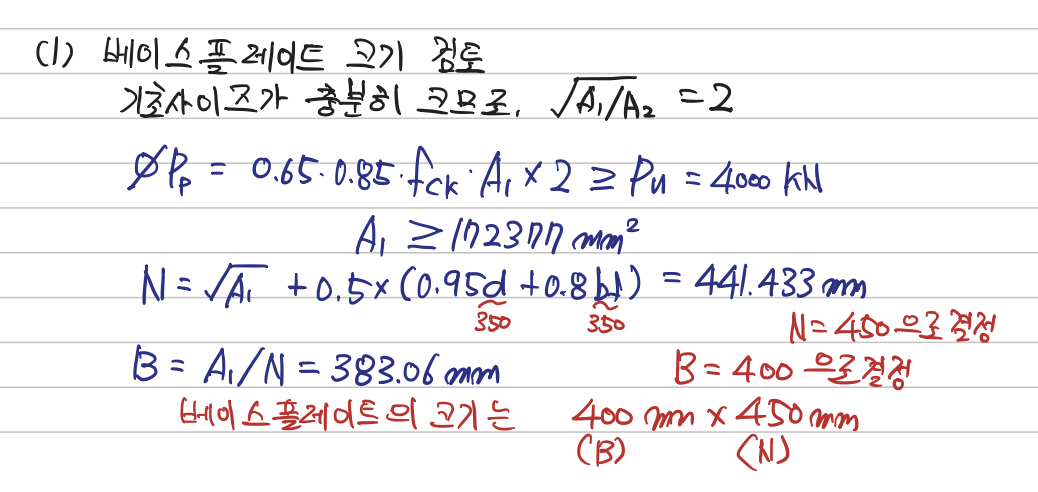 (1) 베이스플레이트 크기 검토
기초사이즈가 충분히 크므로, √A₁/A₂ = 2
øPp = 0.65·0.85·fck·A₁×2 ≥ Pu = 4000 kN
A₁ ≥ 172377 mm²
N = √A₁ + 0.5×(0.95d + 0.8bf) = 441.433 mm
350 350
N = 450 으로 결정
B = A₁/N = 383.06 mm B = 400 으로 결정
베이스플레이트의 크기는 400 mm × 450 mm
(B) (N)